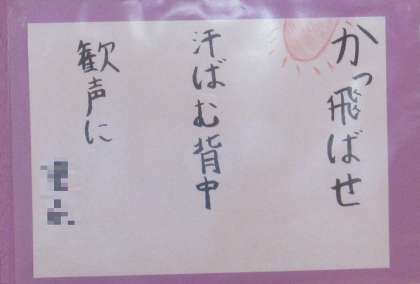 かっ飛ばせ
汗ばむ背中
歓声に